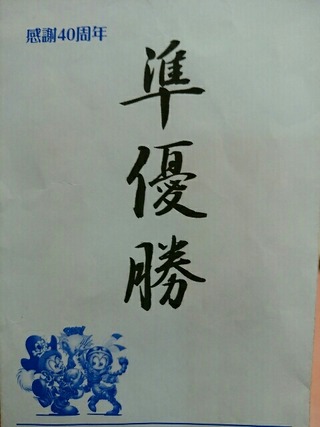 感謝40周年
準優勝